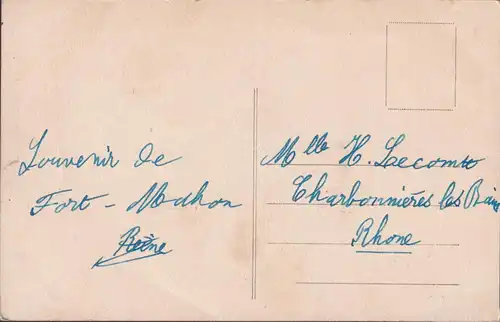 Souvenir de
Fort-Mahon
Reine
Mlle H. Lecomte
Charbonnières les Bains
Rhone